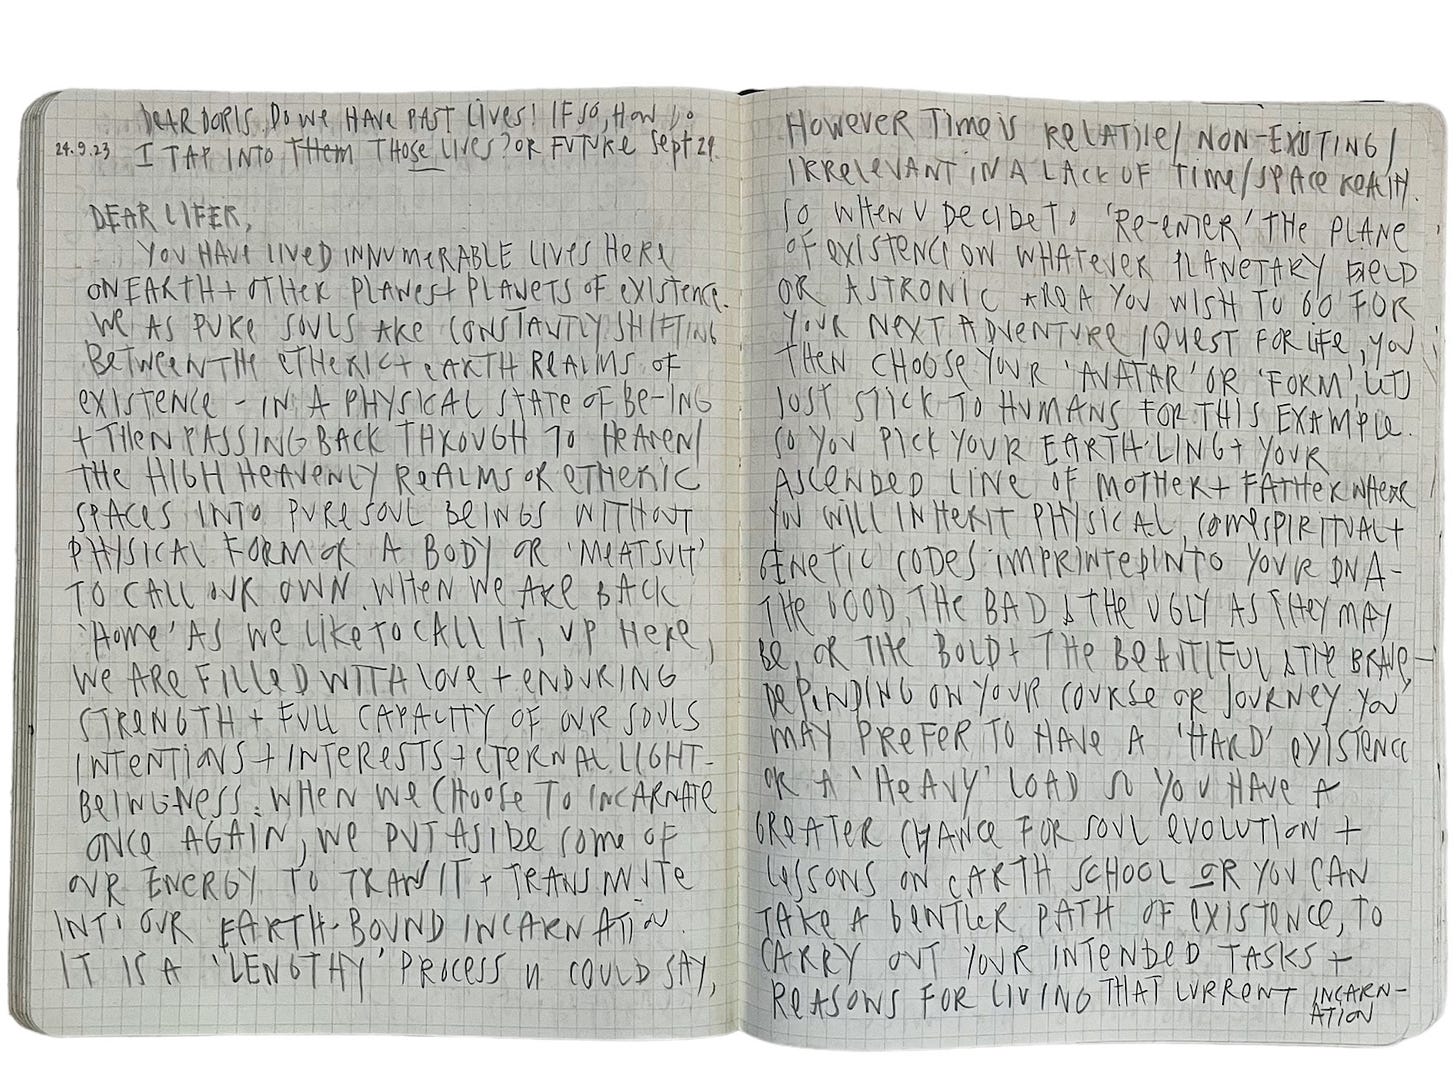 DEAR DORIS. DO WE HAVE PAST LIVES! IF SO, HOW DO
24.9.23 I TAP INTO THEM THOSE LIVES? OR FUTURE Sept 24.
DEAR LIFER,
YOU HAVE LIVED INNUMERABLE LIVES HERE
ON EARTH + OTHER PLANES + PLANETS OF EXISTENCE.
WE AS PURE SOULS ARE CONSTANTLY SHIFTING
BETWEEN THE ETHERIC + EARTH REALMS OF
EXISTENCE - IN A PHYSICAL STATE OF BE-ING
+ THEN PASSING BACK THROUGH TO HEAVEN/
THE HIGH HEAVENLY REALMS OR ETHERIC
SPACES INTO PURE SOUL BEINGS WITHOUT
PHYSICAL FORM OR A BODY OR 'MEATSUIT'
TO CALL OUR OWN. WHEN WE ARE BACK
'HOME' AS WE LIKE TO CALL IT, UP HERE,
WE ARE FILLED WITH LOVE + ENDURING
STRENGTH + FULL CAPACITY OF OUR SOULS
INTENTIONS + INTERESTS + ETERNAL LIGHT-
BEING-NESS. WHEN WE CHOOSE TO INCARNATE
ONCE AGAIN, WE PUT ASIDE SOME OF
OUR ENERGY TO TRANSIT + TRANSMUTE
INTO OUR EARTH-BOUND INCARNATION.
IT IS A 'LENGTHY' PROCESS U COULD SAY,
HOWEVER TIME IS RELATIVE/ NON-EXISTING/
IRRELEVANT IN A LACK OF TIME/SPACE REALM.
SO WHEN U DECIDE TO 'RE-ENTER' THE PLANE
OF EXISTENCE ON WHATEVER PLANETARY FIELD
OR ASTRONIC AREA YOU WISH TO GO FOR
YOUR NEXT ADVENTURE /QUEST FOR LIFE, YOU
THEN CHOOSE YOUR 'AVATAR' OR 'FORM', LETS
JUST STICK TO HUMANS FOR THIS EXAMPLE.
SO YOU PICK YOUR EARTH-LING + YOUR
ASCENDED LINE OF MOTHER + FATHER WHERE
YOU WILL INHERIT PHYSICAL, SOME SPIRITUAL +
GENETIC CODES IMPRINTED INTO YOUR DNA-
THE GOOD, THE BAD & THE UGLY AS THEY MAY
BE, OR THE BOLD + THE BEAUTIFUL & THE BRAVE -
DEPENDING ON YOUR COURSE OR JOURNEY. YOU
MAY PREFER TO HAVE A 'HARD' EXISTENCE
OR A 'HEAVY' LOAD SO YOU HAVE A
GREATER CHANCE FOR SOUL EVOLUTION +
LESSONS ON EARTH SCHOOL OR YOU CAN
TAKE A GENTLER PATH OF EXISTENCE, TO
CARRY OUT YOUR INTENDED TASKS +
REASONS FOR LIVING THAT CURRENT INCARN-
ATION